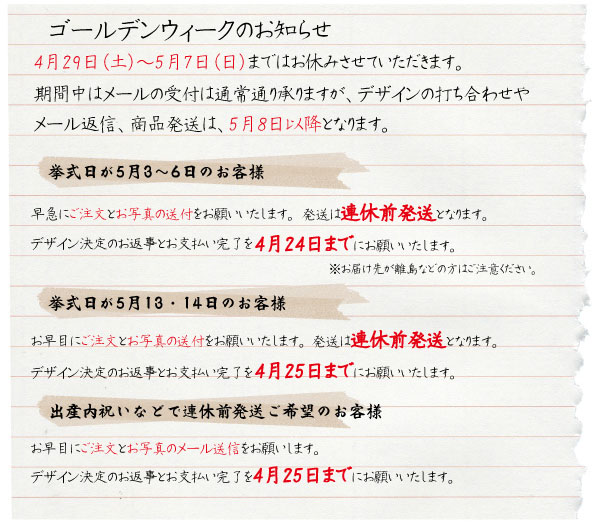 ゴールデンウィークのお知らせ
4月29日(土)～5月7日(日)まではお休みさせていただきます。
期間中はメールの受付は通常通り承りますが、デザインの打ち合わせや
メール返信、商品発送は、5月8日以降となります。
挙式日が5月3～6日のお客様
早急にご注文とお写真の送付をお願いいたします。 発送は連休前発送となります。
デザイン決定のお返事とお支払い完了を4月24日までにお願いいたします。
※お届け先が離島などの方はご注意ください。
挙式日が5月13・14日のお客様
お早目にご注文とお写真の送付をお願いいたします。 発送は連休前発送となります。
デザイン決定のお返事とお支払い完了を4月25日までにお願いいたします。
出産内祝いなどで連休前発送ご希望のお客様
お早目にご注文とお写真のメール送信をお願いします。
デザイン決定のお返事とお支払い完了を4月25日までにお願いいたします。